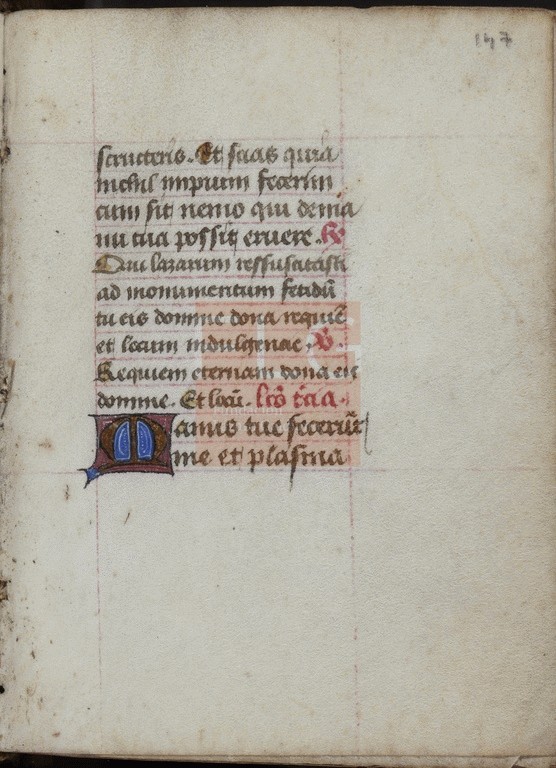 147
scructeris. Et scias quia
nichil impium fecerim
cum sit nemo qui de ma
nu tua possit eruere. R
Qui lazarum ressuscitasti
ad monumentum fetidū
tu eis domine dona requiē
et locum indulgencie. V.
Requiem eternam dona eis
domine. Et locū. lcō t̄cia.
Manus tue fecerūt
me et plasma